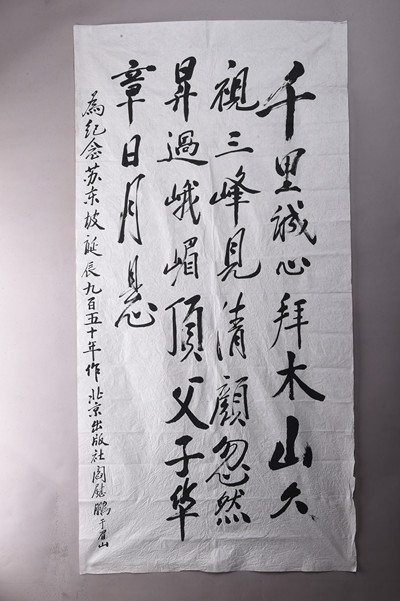 千里诚心拜木山久
視三峰見清顏忽然
昇過峨嵋頂父子華
章日月悬
為纪念苏东坡誕辰九百五十年作北京出版社阎慰鵬于眉山